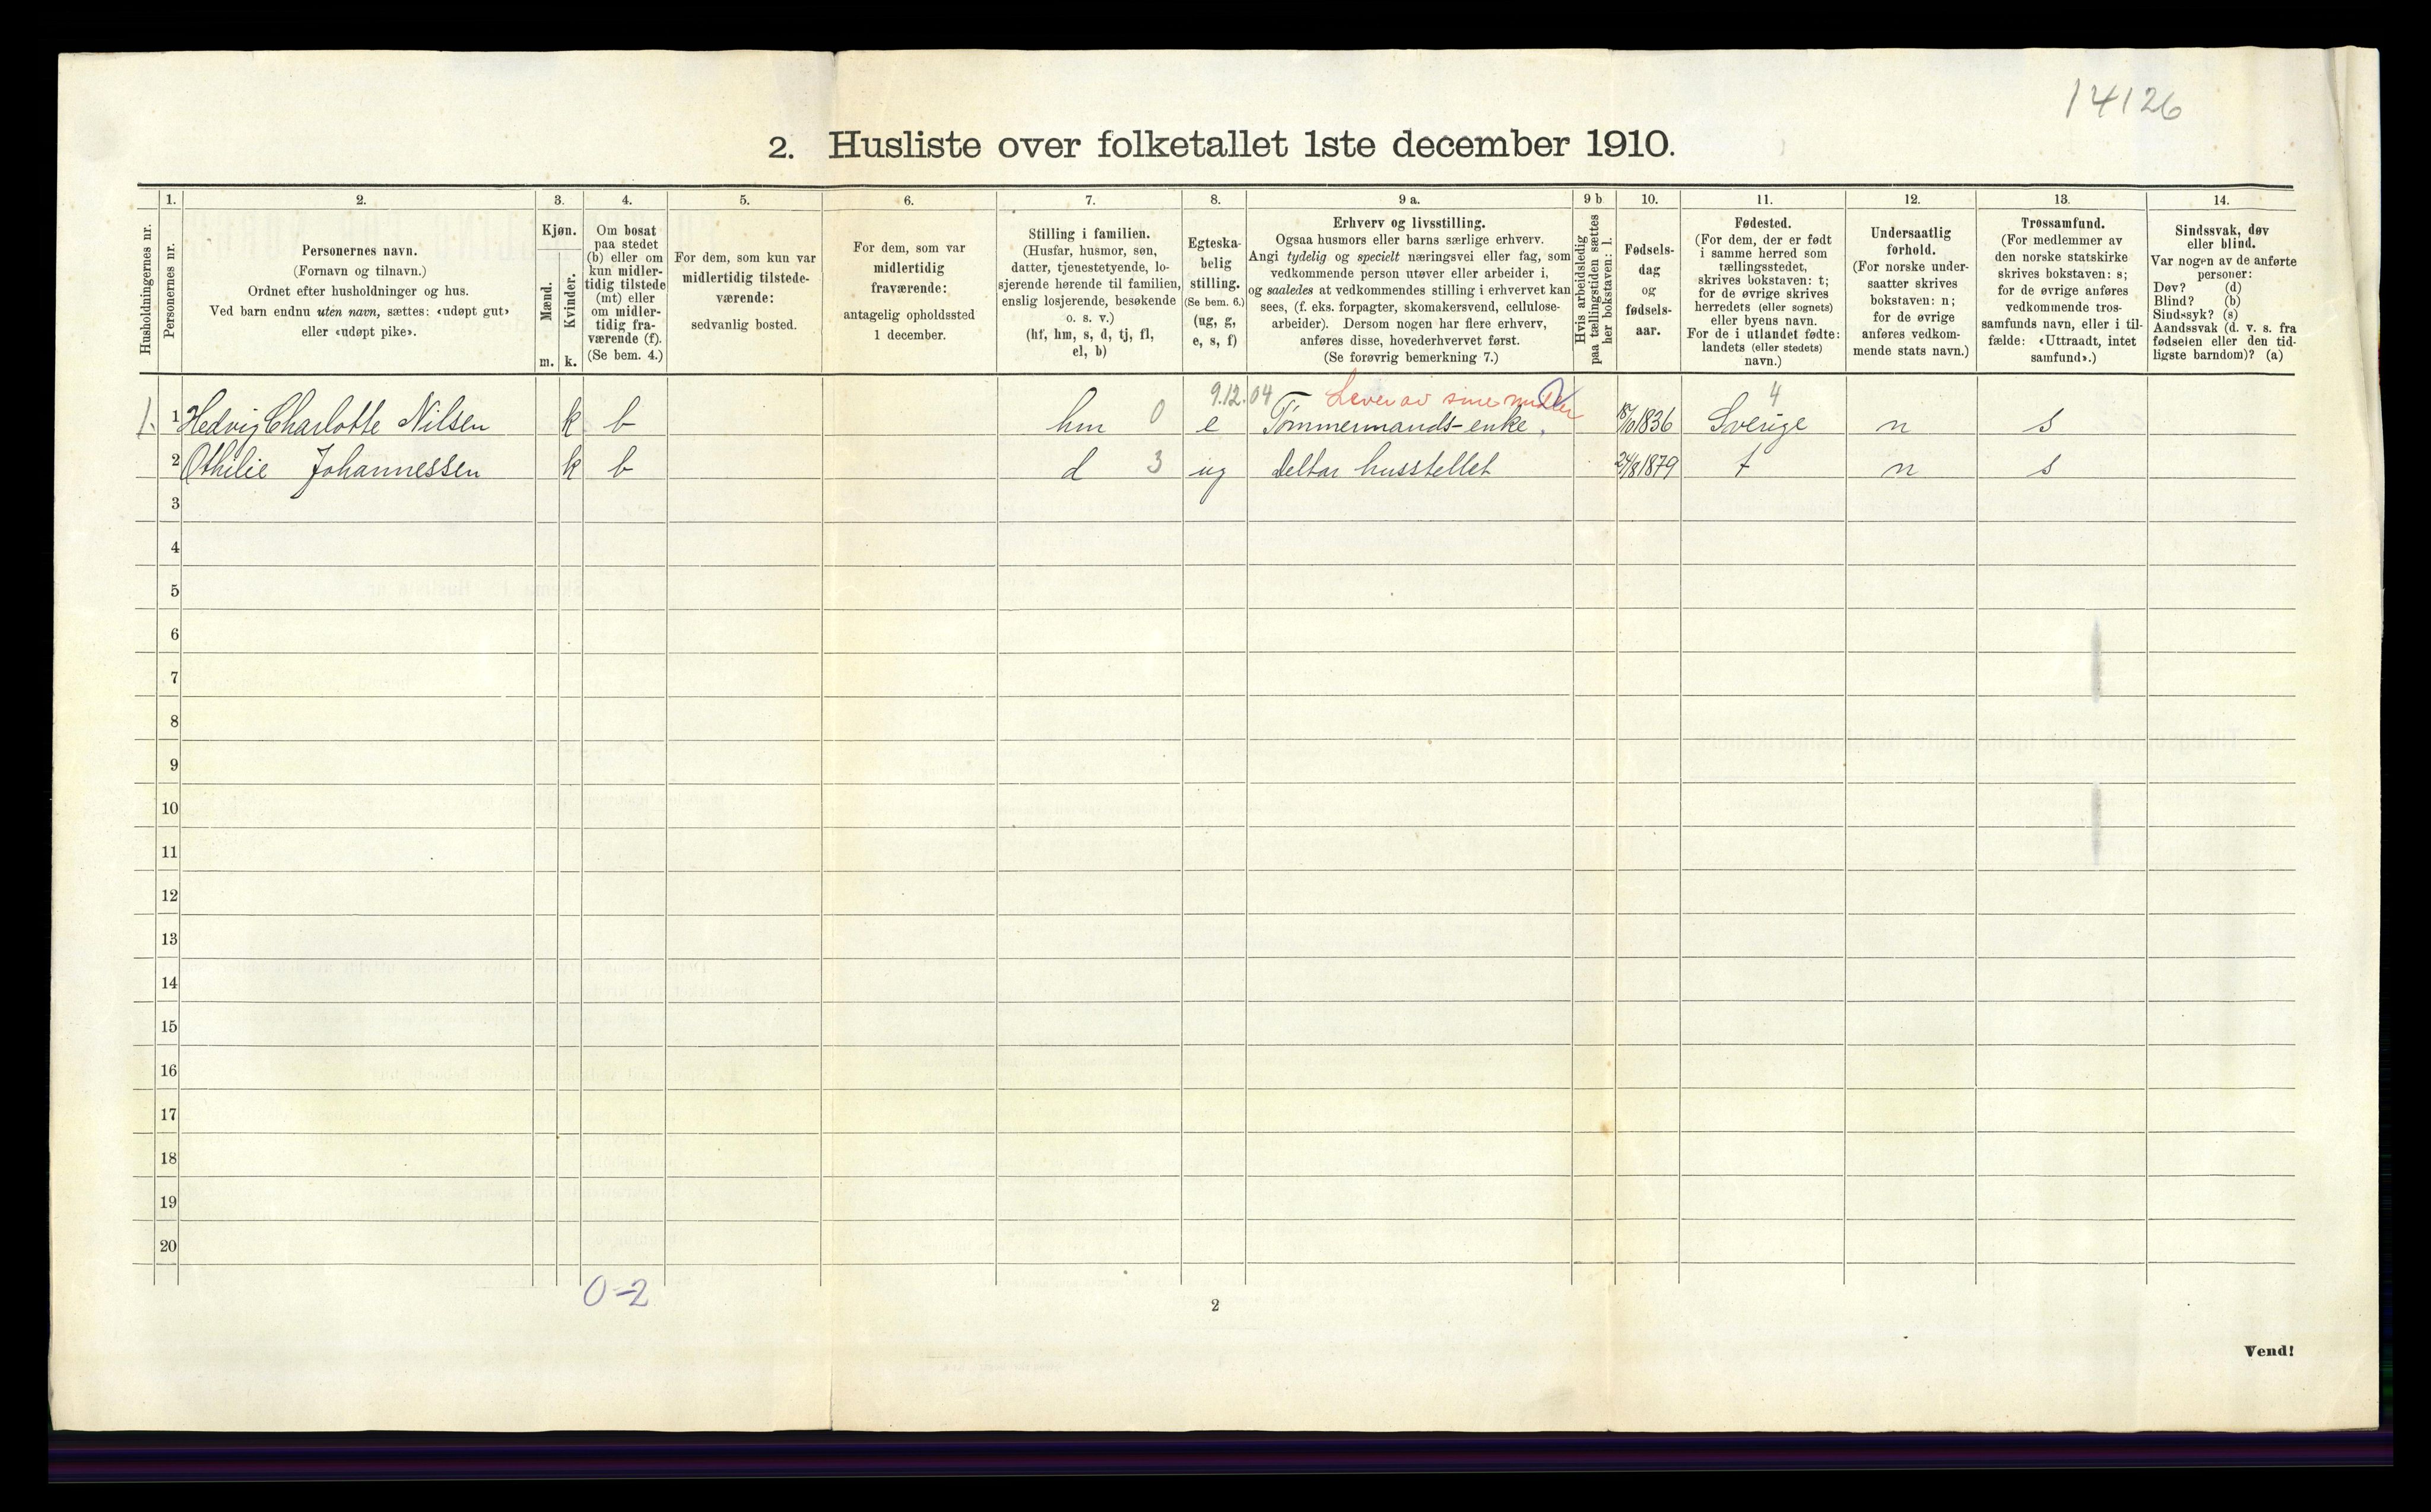 14126
2. Husliste over folketallet 1ste december 1910.
Husholdningernes nr.
1.
Personernes nr.
2.
Personernes navn.
(Fornavn og tilnavn.)
Ordnet efter husholdninger og hus.
Ved barn endnu uten navn, sættes: «udøpt gut»
eller «udøpt pike».
3.
Kjøn.
Mænd.
m.
Kvinder.
k.
4.
Om bosat
paa stedet
(b) eller om
kun midler-
tidig tilstede
(mt) eller
om midler-
tidig fra-
værende (f).
(Se bem. 4.)
5.
For dem, som kun var
midlertidig tilstede-
værende:
sedvanlig bosted.
6.
For dem, som var
midlertidig
fraværende:
antagelig opholdssted
1 december.
7.
Stilling i familien.
(Husfar, husmor, søn,
datter, tjenestetyende, lo-
sjerende hørende til familien,
enslig losjerende, besøkende
o. s. v.)
(hf, hm, s, d, tj, fl,
el, b)
8.
Egteska-
belig
stilling.
(Se bem. 6.)
(ug, g,
e, s, f)
9 a.
Erhverv og livsstilling.
Ogsaa husmors eller barns særlige erhverv.
Angi tydelig og specielt næringsvei eller fag, som
vedkommende person utøver eller arbeider i,
og saaledes at vedkommendes stilling i erhvervet kan
sees, (f. eks. forpagter, skomakersvend, cellulose-
arbeider). Dersom nogen har flere erhverv,
anføres disse, hovederhvervet først.
(Se forøvrig bemerkning 7.)
9 b
Hvis arbeidsledig
paa tællingstiden sættes
her bokstaven: l.
10.
Fødsels-
dag
og
fødsels-
aar.
11.
Fødested.
(For dem, der er født
i samme herred som
tællingsstedet,
skrives bokstaven: t;
for de øvrige skrives
herredets (eller sognets)
eller byens navn.
For de i utlandet fødte:
landets (eller stedets)
navn.)
12.
Undersaatlig
forhold.
(For norske under-
saatter skrives
bokstaven: n;
for de øvrige
anføres vedkom-
mende stats navn.)
13.
Trossamfund.
(For medlemmer av
den norske statskirke
skrives bokstaven: s;
for de øvrige anføres
vedkommende tros-
samfunds navn, eller i til-
fælde: «Uttraadt, intet
samfund».)
14.
Sindssvak, døv
eller blind.
Var nogen av de anførte
personer:
Døv? (d)
Blind? (b)
Sindssyk? (s)
Aandssvak (d. v. s. fra
fødselen eller den tid-
ligste barndom)? (a)
9.12.04 Lever av sine midler 4
1. 1 Hedvig Charlotte Nilsen k b hm 0 e Tømmermands-enke 1836 Sverige n s
2 Othilie Johannessen k b d 3 ug deltar husstellet 24/8 1879 t n s
3
4
5
6
7
8
9
10
11
12
13
14
15
16
17
18
19
20
0-2
2
Vend!